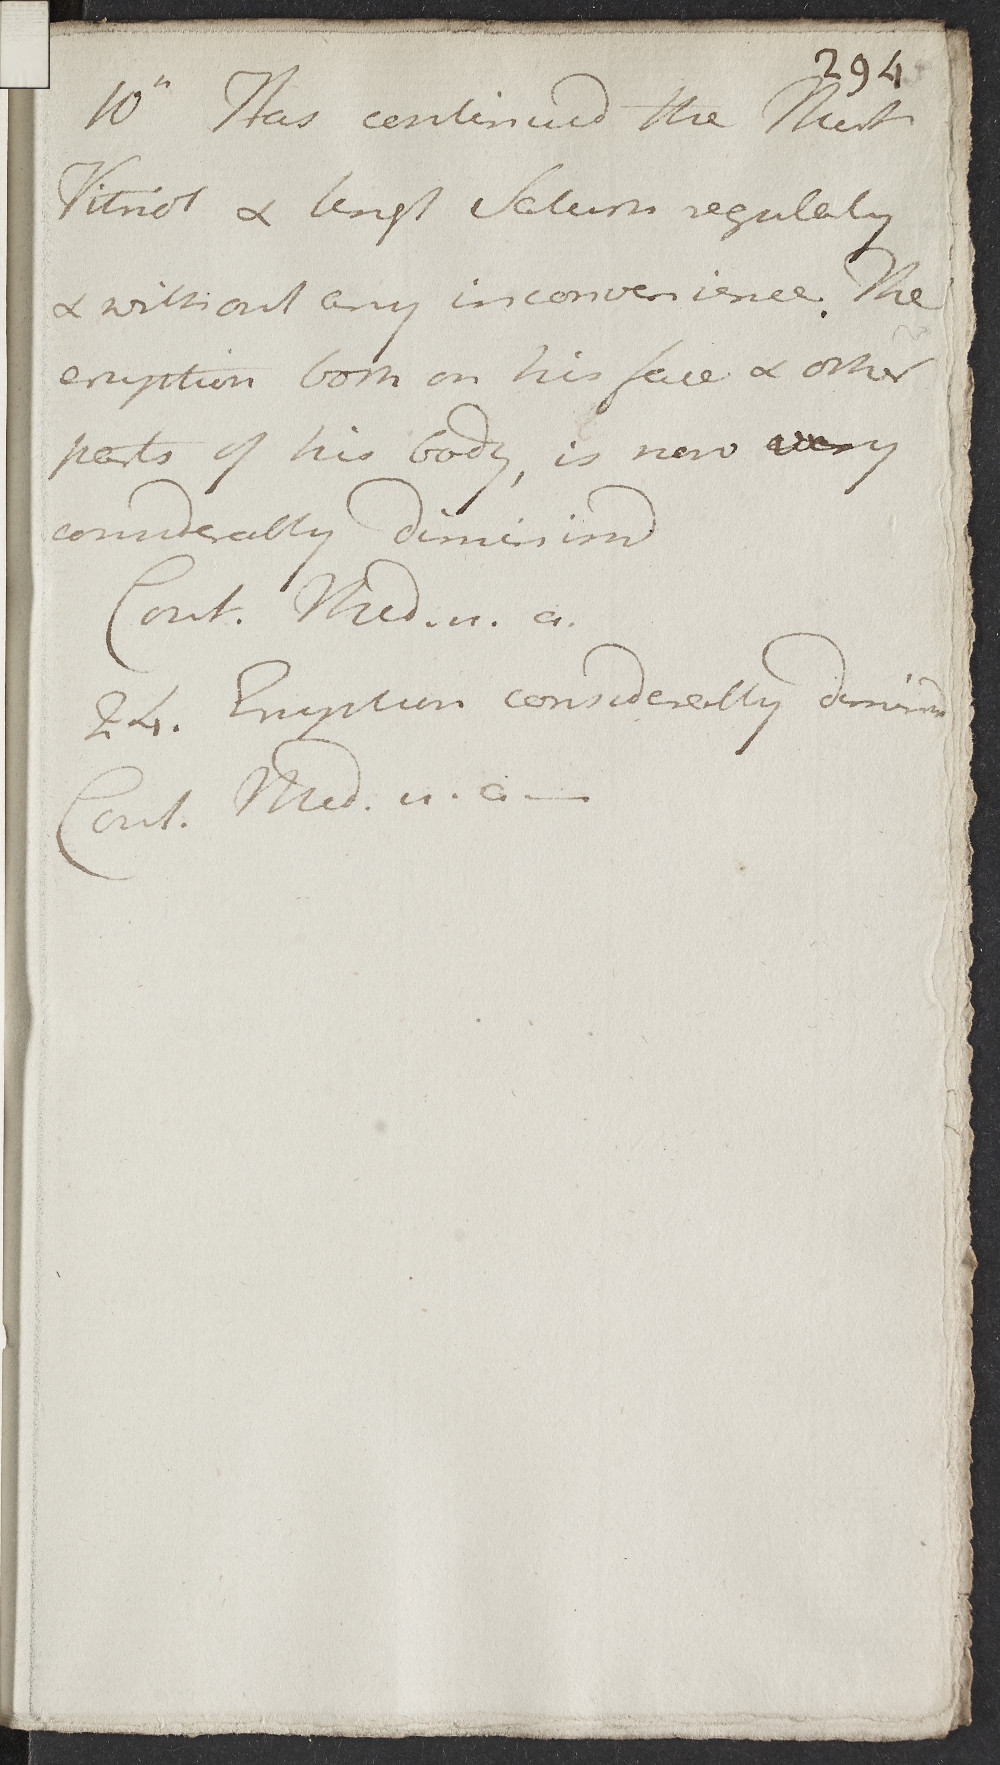 294
10" Has continued the Mist
Vitriol & Ungt Saturn regularly
& without any inconvenience. The
eruption both on his face & other
parts of his body, is now very
considerably diminisd
Cont. Med. u. a.
24. Eruption considerably diminisd
Cont. Med. u. a. —